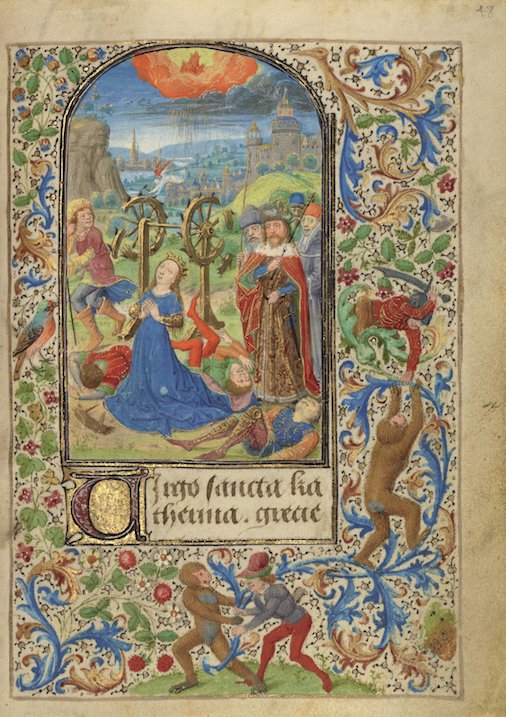 48
Virgo sancta ka
therina. grecie